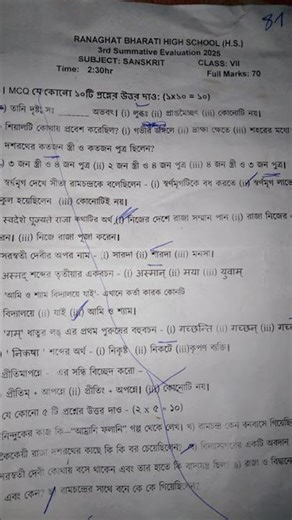 81
RANAGHAT BHARATI HIGH SCHOOL (H.S.)
3rd Summative Evaluation 2025
SUBJECT: SANSKRIT CLASS: VII
Time: 2:30hr Full Marks: 70
। MCQ যে কোনো ১০টি প্রশ্নের উত্তর দাও: (১x১০ = ১০)
তানি দৃষ্ট্বা সঃ ______ অভবৎ। (i) লুব্ধঃ (ii) প্রাপ্তমোহঃ (iii) কোনোটি নয়।
শিয়ালটি কোথায় প্রবেশ করেছিল? (i) গভীর জঙ্গলে (ii) দ্রাক্ষা ক্ষেতে (iii) শহরের মধ্যে
দশরথের কতজন স্ত্রী ও কতজন পুত্র ছিলেন?
৩ জন স্ত্রী ও ৪ জন পুত্র (ii) ২ জন স্ত্রী ও ৪ জন পুত্র (iii) ৪ জন স্ত্রী ও ৩ জন পুত্র।
স্বর্ণমৃগ দেখে সীতা রামচন্দ্রকে বলেছিলেন - (i) স্বর্ণমৃগটিকে বধ করতে (ii) স্বর্ণমৃগ লাভে
কুল হয়েছিলেন (iii) কোনোটিই নয়।
স্বদেশে পূজ্যতে রাজা কথাটির অর্থ (i) নিজের দেশে রাজা সম্মান পান (ii) রাজা নিজের
রন। (iii) নিজে রাজা পূজা করেন।
সরস্বতী দেবীর অপর নাম - (i) সারদা (ii) শারদা (iii) মনসা।
অস্মদ্ শব্দের তৃতীয়ার একবচন - (i) অস্মান্ (ii) ময়া (iii) যুবাম্
'আমি ও শ্যাম বিদ্যালয়ে যাই'- এখানে কর্তা কারক কোনটি
বিদ্যালয়ে (ii) যাই (iii) আমি ও শ্যাম।
'গম্' ধাতুর লঙ্ এর প্রথম পুরুষের বহুবচন - (i) গচ্ছন্তি (ii) গচ্ছন্
' নিকষা ' শব্দের অর্থ - (i) নিকৃষ্ট (ii) নিকটে (iii) কৃপণ ব্যক্তি।
প্রীতিমাপন্নে - এর সন্ধি বিচ্ছেদ করো -
প্রীতিম্ + আপন্নে (ii) প্রীতিঃ + অপন্নে। (iii) কোনোটি নয়।
যে কোনো ৫ টি প্রশ্নের উত্তর দাও - (২ x ৫ = ১০)
নিন্দুকের কাজ কি--"আম্রানি ফলানি" গল্প থেকে লেখ। খ) রামচন্দ্র কেন বনবাসে গিয়েছি
কৈকেয়ী রাজা দশরথের কাছে কি কি বর চেয়েছিলেন? বিদ্যাসাগরের একটি অবদান
সরস্বতী দেবী কোথায় বসে থাকেন এবং তার হাতে কি রাজা ও বিদ্বানে
এবং কেন? রামচন্দ্রের সাথে বনে কে কে গিয়েছিলেন?